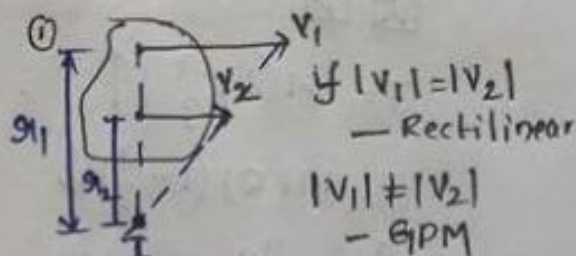 ①
V₁
V₂
r₁
r₂
I
if |V₁| = |V₂|
— Rectilinear
|V₁| ≠ |V₂|
— GPM